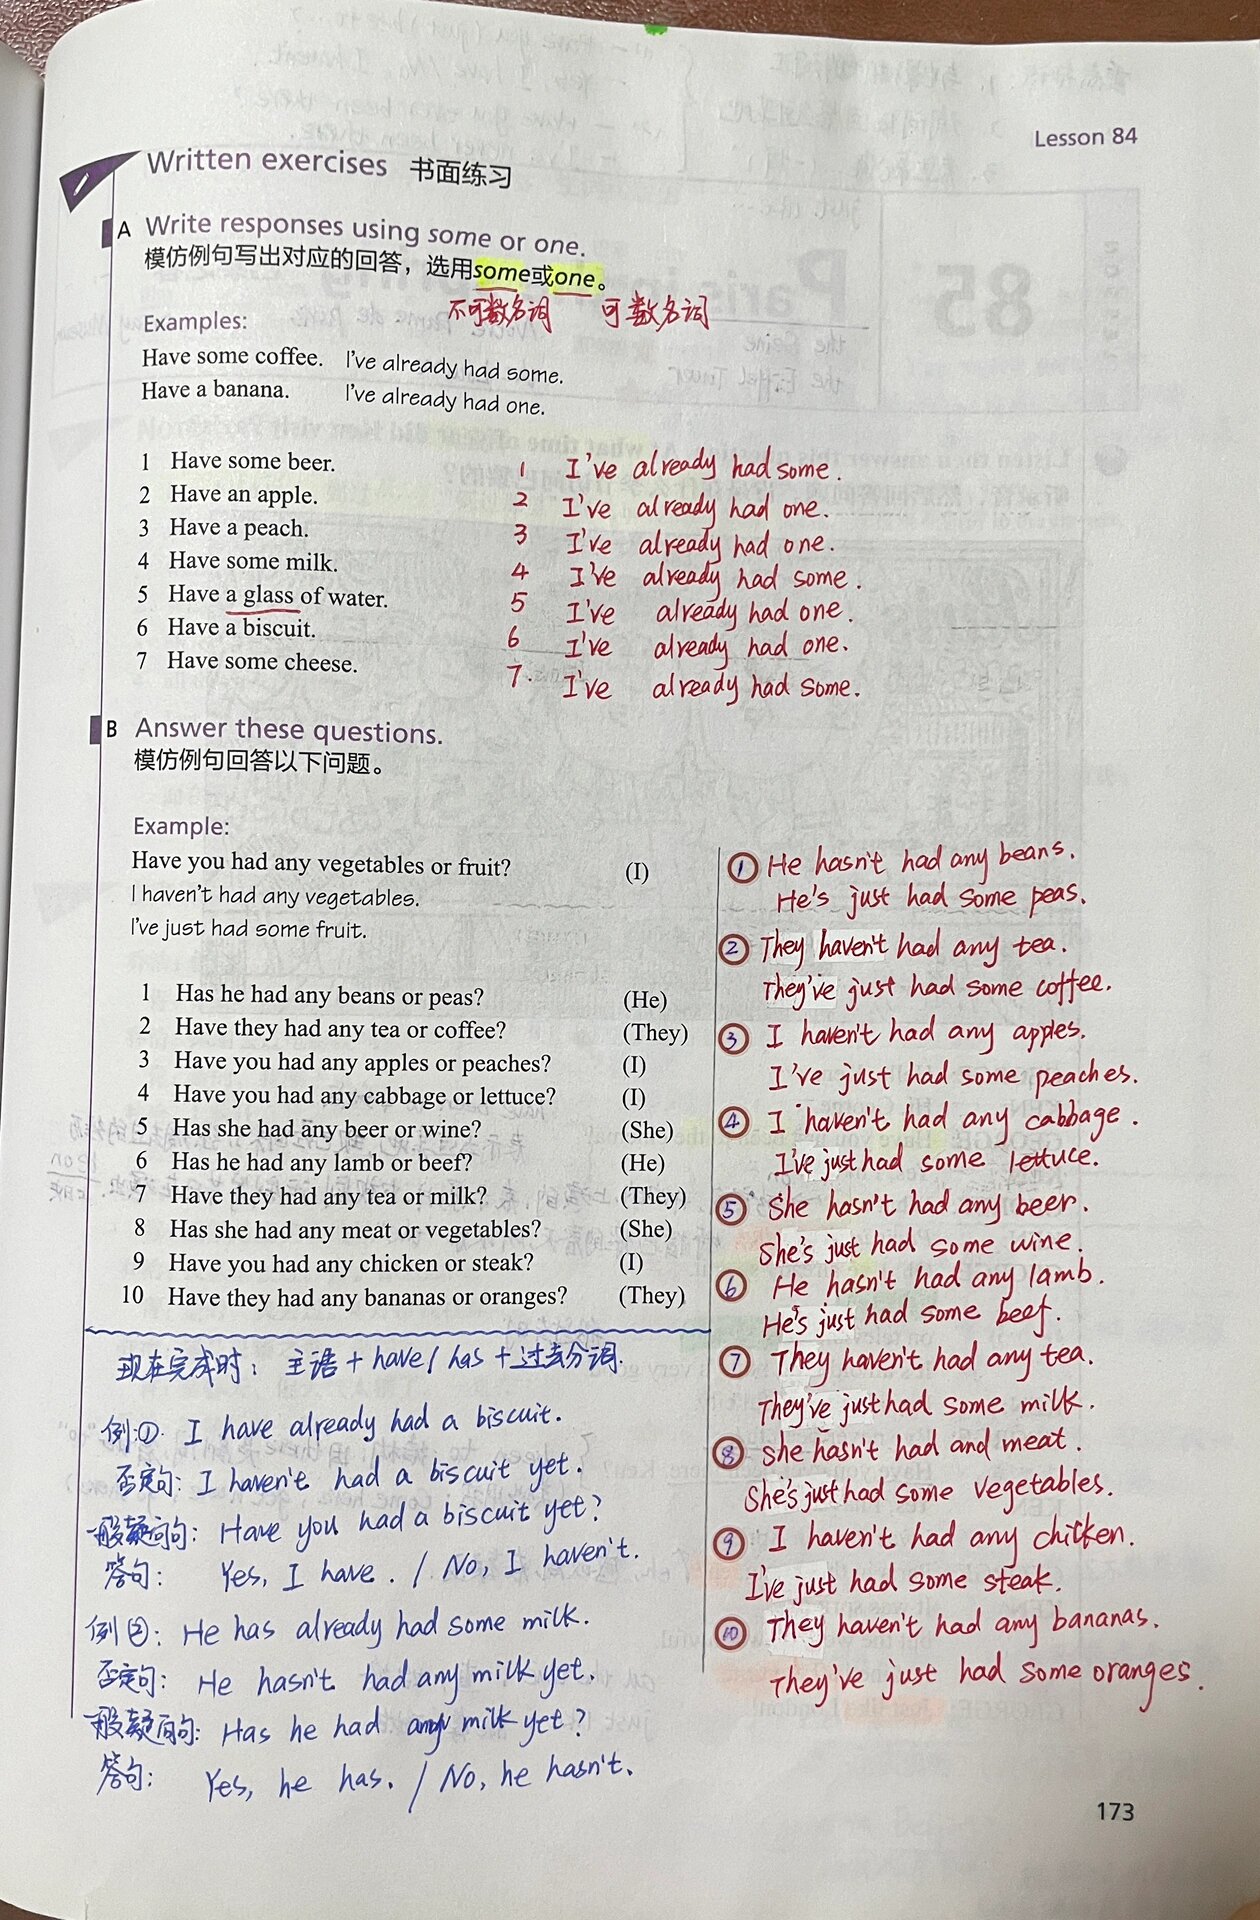 Lesson 84
Written exercises 书面练习
A Write responses using some or one.
模仿例句写出对应的回答，选用some或one。
不可数名词 可数名词
Examples:
Have some coffee. I've already had some.
Have a banana. I've already had one.
1 Have some beer.
2 Have an apple.
3 Have a peach.
4 Have some milk.
5 Have a glass of water.
6 Have a biscuit.
7 Have some cheese.
1 I've already had some.
2 I've already had one.
3 I've already had one.
4 I've already had some.
5 I've already had one.
6 I've already had one.
7. I've already had some.
B Answer these questions.
模仿例句回答以下问题。
Example:
Have you had any vegetables or fruit? (I)
I haven't had any vegetables.
I've just had some fruit.
1 Has he had any beans or peas? (He)
2 Have they had any tea or coffee? (They)
3 Have you had any apples or peaches? (I)
4 Have you had any cabbage or lettuce? (I)
5 Has she had any beer or wine? (She)
6 Has he had any lamb or beef? (He)
7 Have they had any tea or milk? (They)
8 Has she had any meat or vegetables? (She)
9 Have you had any chicken or steak? (I)
10 Have they had any bananas or oranges? (They)
① He hasn't had any beans.
He's just had some peas.
② They haven't had any tea.
They've just had some coffee.
③ I haven't had any apples.
I've just had some peaches.
④ I haven't had any cabbage.
I've just had some lettuce.
⑤ She hasn't had any beer.
She's just had some wine.
⑥ He hasn't had any lamb.
He's just had some beef.
⑦ They haven't had any tea.
They've just had some milk.
⑧ She hasn't had and meat.
She's just had some vegetables.
⑨ I haven't had any chicken.
I've just had some steak.
⑩ They haven't had any bananas.
They've just had some oranges.
现在完成时：主语 + have / has + 过去分词.
例①. I have already had a biscuit.
否定句: I haven't had a biscuit yet.
一般疑问句: Have you had a biscuit yet?
答句: Yes, I have. / No, I haven't.
例②: He has already had some milk.
否定句: He hasn't had any milk yet.
一般疑问句: Has he had any milk yet?
答句: Yes, he has. / No, he hasn't.
173